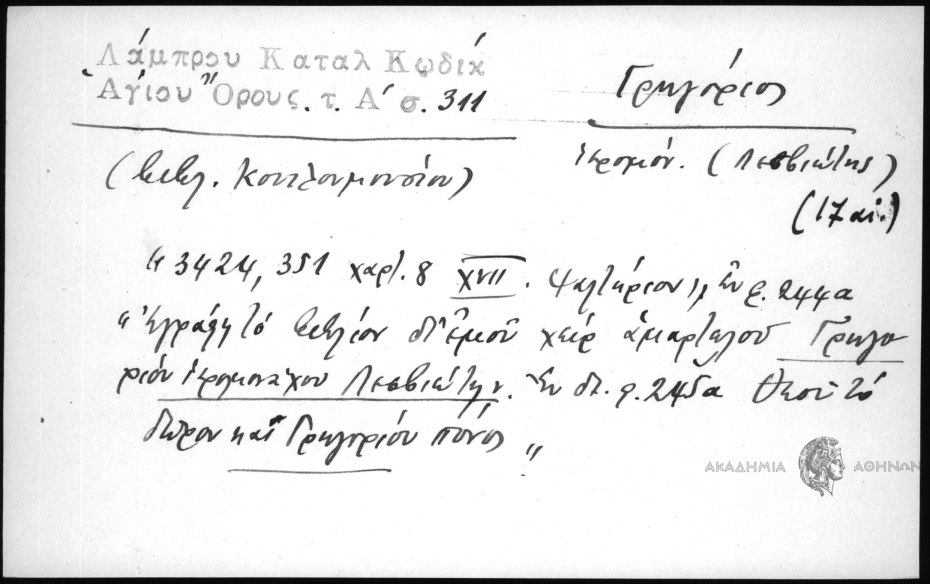 Λάμπρου Καταλ Κωδίκ
Ἁγίου Ὄρους. τ. Α΄ σ. 311
Γρηγόριος
(Βιβλ. Κουτλουμουσίου)
ἱερομόν. (Λεσβιώτης)
(17 αἰ.)
"3424, 351 χαρτ. 8 XVII. Ψαλτήριον", Ἐν φ. 244α
"Ἐγράφη τό βιβλίον δι' ἐμοῦ χείρ ἁμαρτωλοῦ Γρηγο
ρίου ἱερομονάχου Λεσβιώτην. Ἐν δὲ. φ. 245α Θεοῦ τό
δῶρον καί Γρηγορίου πόνος"
ΑΚΑΔΗΜΙΑ ΑΘΗΝΩΝ